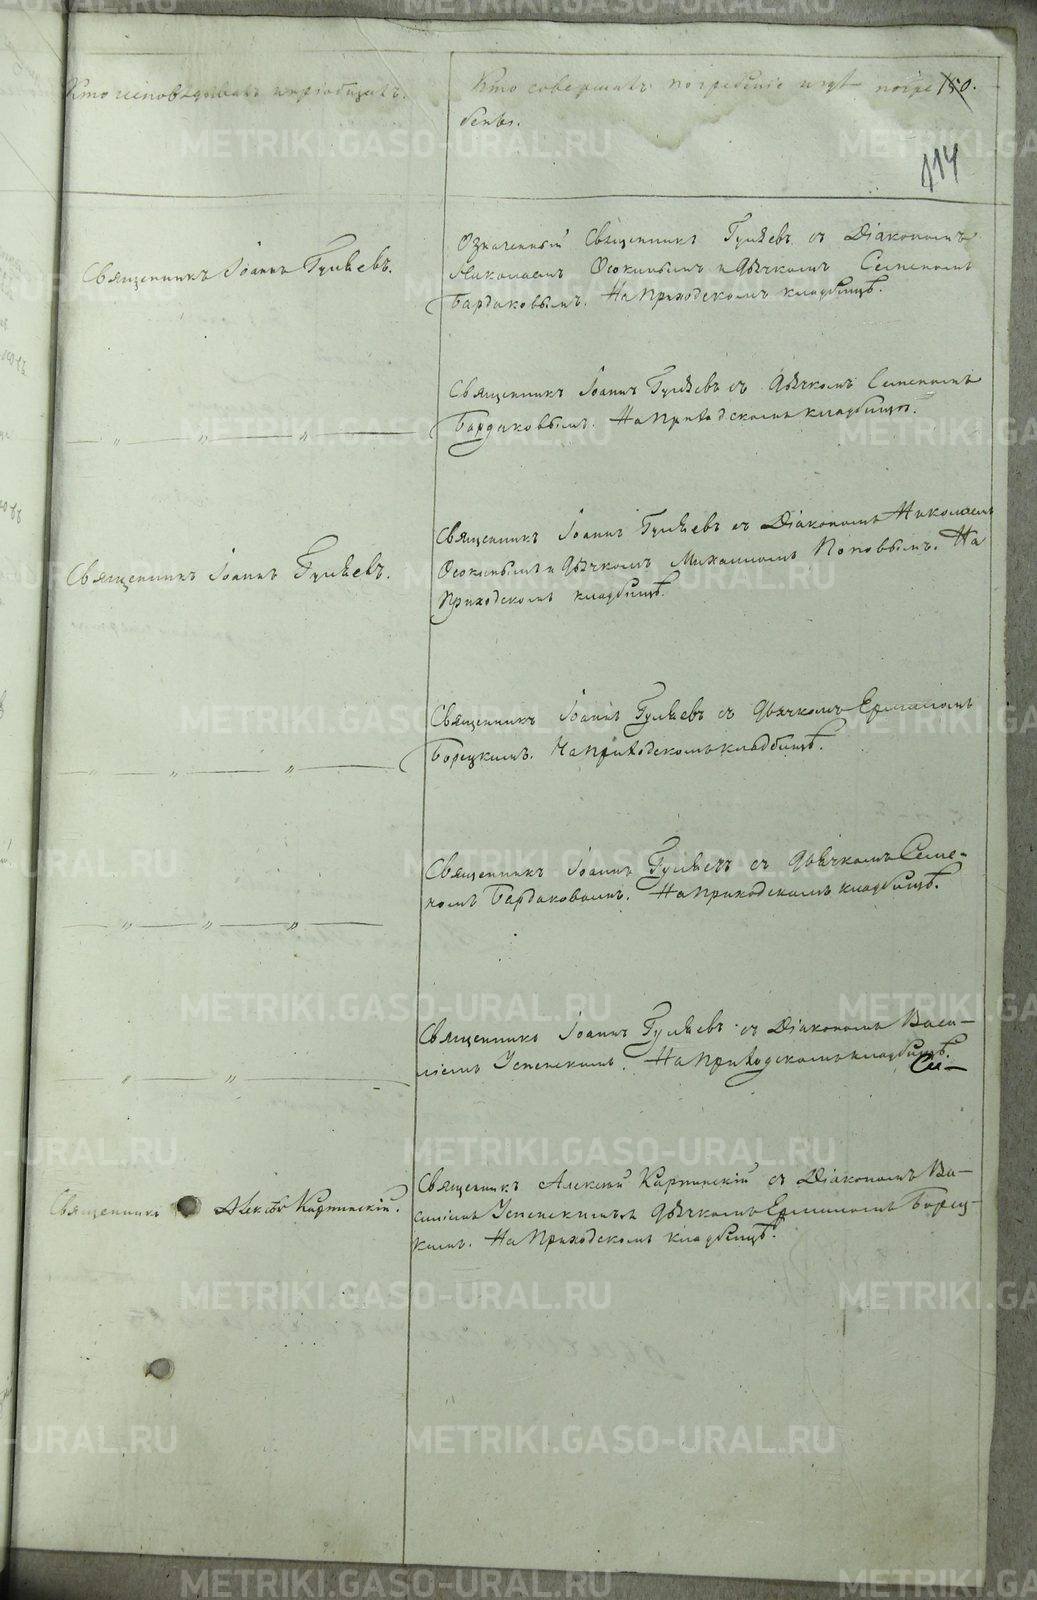 Кто исповѣдывалъ и пріобщалъ.
Кто совершалъ погребеніе и гдѣ погре
бены.
150.
114
Священникъ Іоаннъ Гуляевъ.
Означенный Священникъ Гуляевъ съ Діакономъ
Николаемъ Осокинымъ и дьячкомъ Семеномъ
Бардаковымъ. На приходскомъ кладбищѣ.
— „ — „ — „ —
Священникъ Іоаннъ Гуляевъ съ дьячкомъ Семеномъ
Бардаковымъ. На приходскомъ кладбищѣ.
Священникъ Іоаннъ Гуляевъ.
Священникъ Іоаннъ Гуляевъ съ Діакономъ Николаемъ
Осокинымъ и дьячкомъ Михаиломъ Поповымъ. На
приходскомъ кладбищѣ.
— „ — „ — „ —
Священникъ Іоаннъ Гуляевъ съ дьячкомъ Ермиломъ
Борецкимъ. На приходскомъ кладбищѣ.
— „ — „ — „ —
Священникъ Іоаннъ Гуляевъ съ дьячкомъ Семе-
номъ Бардаковымъ. На приходскомъ кладбищѣ.
— „ — „ —
Священникъ Іоаннъ Гуляевъ съ Діакономъ Васи-
ліемъ Успенскимъ. На приходскомъ кладбищѣ.
Си—
Священникъ Алексѣй Карпинскій.
Священникъ Алексѣй Карпинскій съ Діакономъ Ва-
силіемъ Успенскимъ и дьячкомъ Ермиломъ Борец-
кимъ. На приходскомъ кладбищѣ.
METRIKI.GASO-URAL.RU